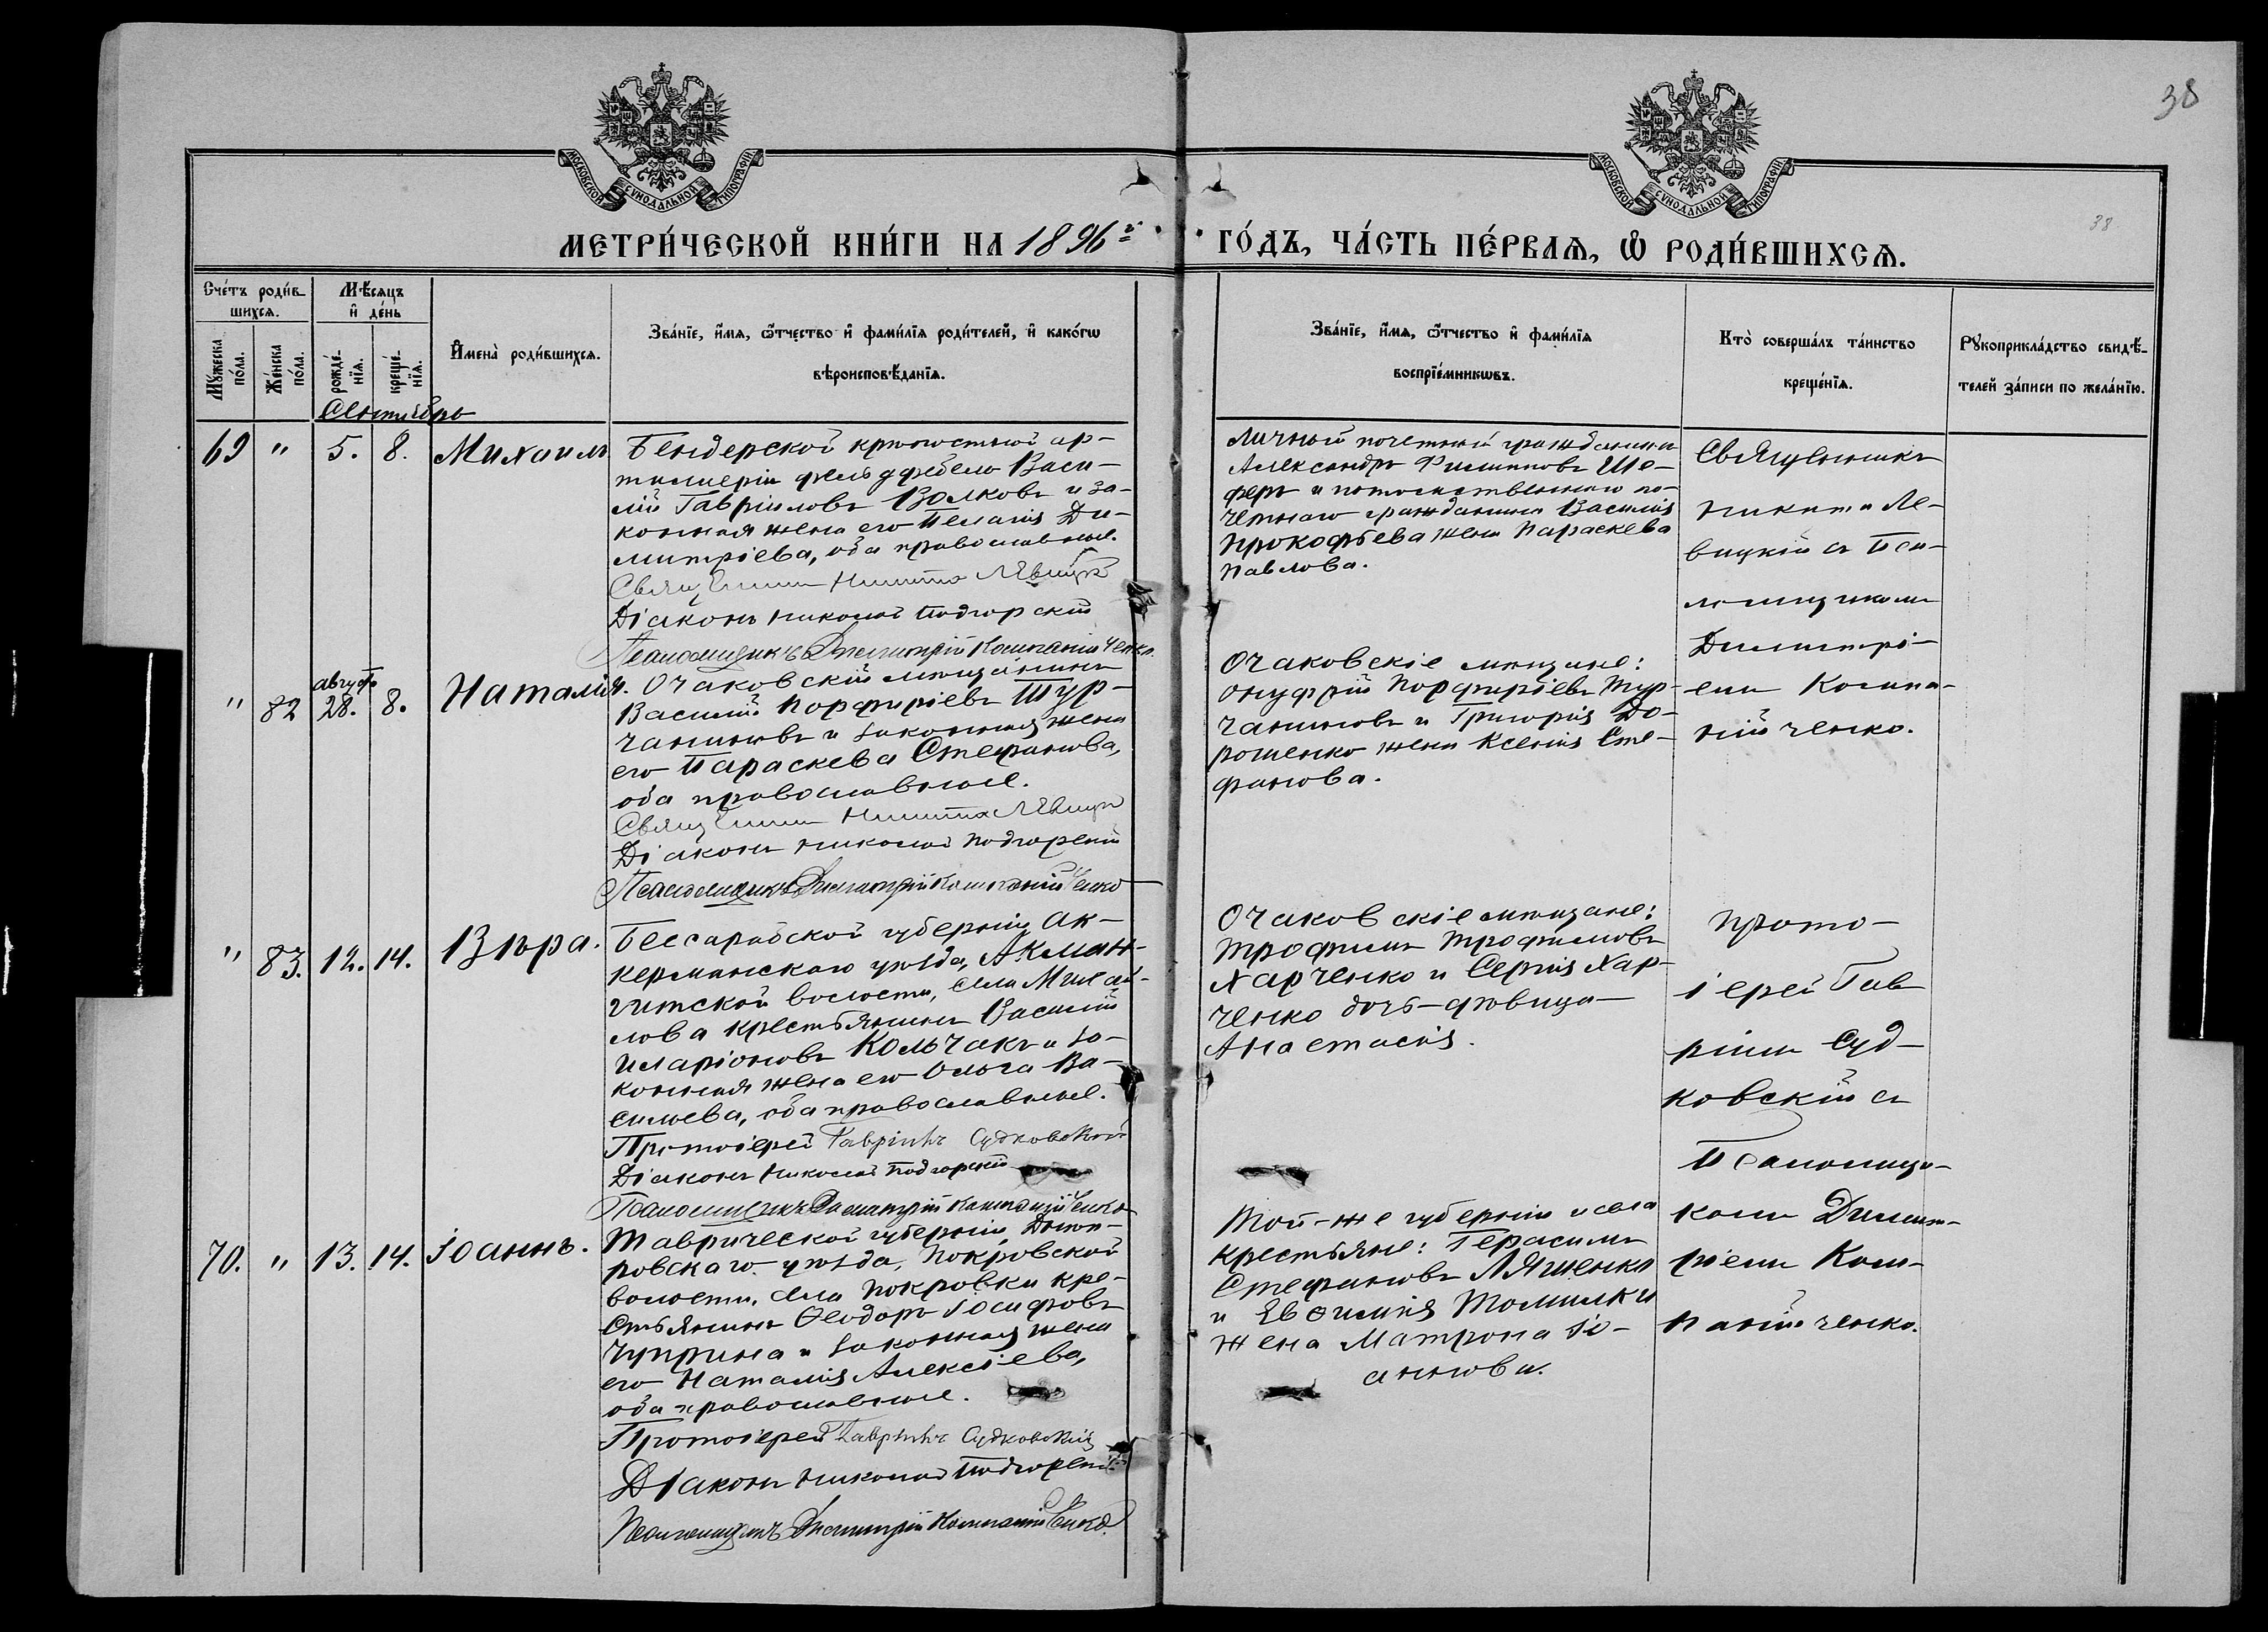 38
38
МОСКОВСКОЙ СѴНОДАЛЬНОЙ ТИПОГРАФІИ
МОСКОВСКОЙ СѴНОДАЛЬНОЙ ТИПОГРАФІИ
МЕТРИ́ЧЕСКОЙ КНИ́ГИ НА 1896й ГО́ДЪ, ЧА́СТЬ ПЕ́РВАѦ, Ѽ РОДИ́ВШИХСѦ.
Сче́тъ роди́в-
шихсѧ.
Мꙋ́жеска по́ла.
Же́нска по́ла.
Мѣ́сѧцъ
и҆ де́нь
рожде́-
нїѧ.
креще́-
нїѧ.
И҆мена̀ роди́вшихсѧ.
Зва́нїе, и҆́мѧ, ѻ҆́тчество и҆ фами́лїѧ роди́телей, и҆ како́гѡ
вѣроисповѣ́данїѧ.
Зва́нїе, и҆́мѧ, ѻ҆́тчество и҆ фами́лїѧ
воспрїе́мникѡвъ.
Кто̀ соверша́лъ та́инство
креще́нїѧ.
Рꙋкоприкла́дство свидѣ́-
телей за́писи по жела́нїю.
Сентябрь
69 " 5. 8. Михаилъ
Бендерской крѣпостной ар-
тиллеріи фельдфебель Васи-
лій Гавріиловъ Волковъ и за-
конная жена его Пелагія Ди-
митріева, оба православные.
Священникъ Никита Левицкій
Діаконъ Николай Подгорскій
Псаломщикъ Димитрій Компанійченко
Личный почетный гражданинъ
Александръ Филипповъ Ше-
феръ и потомственнаго по-
четнаго гражданина Василія
Прокофьева жена Параскева
Павлова.
Священникъ
Никита Ле-
вицкій съ Пса-
ломщикомъ
Димитрі-
емъ Компа-
нійченко.
" 82 августа 28. 8. Наталія.
Очаковскій мѣщанинъ
Василій Порфиріевъ Тур-
чаниновъ и законная жена
его Параскева Стефанова,
оба православные.
Священникъ Никита Левицкій
Діаконъ Николай Подгорскій
Псаломщикъ Димитрій Компанійченко
Очаковскіе мѣщане:
Онуфрій Порфиріевъ Тур-
чаниновъ и Григорія До-
рошенко жена Ксенія Сте-
фанова.
" 83. 12. 14. Вѣра.
Бессарабской губерніи Ак-
керманскаго уѣзда, Акман-
гитской волости, села Михай-
лова крестьянинъ Василій
Иларіоновъ Кольчакъ и за-
конная жена его Ольга Ва-
сильева, оба православные.
Протоіерей Гавріилъ Судковскій
Діаконъ Николай Подгорскій
Псаломщикъ Димитрій Компанійченко
Очаковскіе мѣщане:
Трофимъ Трофимовъ
Харченко и Сергія Хар-
ченко дочь-дѣвица
Анастасія.
Прото-
іерей Гав-
ріилъ Суд-
ковскій съ
Псаломщи-
комъ Димит-
ріемъ Ком-
панійченко.
70. " 13. 14. Іоаннъ.
Таврической губерніи, Днѣп-
ровскаго уѣзда, Покровской
волости, села Покровки кре-
стьянинъ Ѳеодоръ Іосифовъ
Чуприна и законная жена
его Наталія Алексіева,
оба православные.
Протоіерей Гавріилъ Судковскій
Діаконъ Николай Подгорскій
Псаломщикъ Димитрій Компанійченко.
Той-же губерніи и села
крестьяне: Герасимъ
Стефановъ Ляшенко
и Евѳимія Томилки
жена Матрона Іо-
аннова.